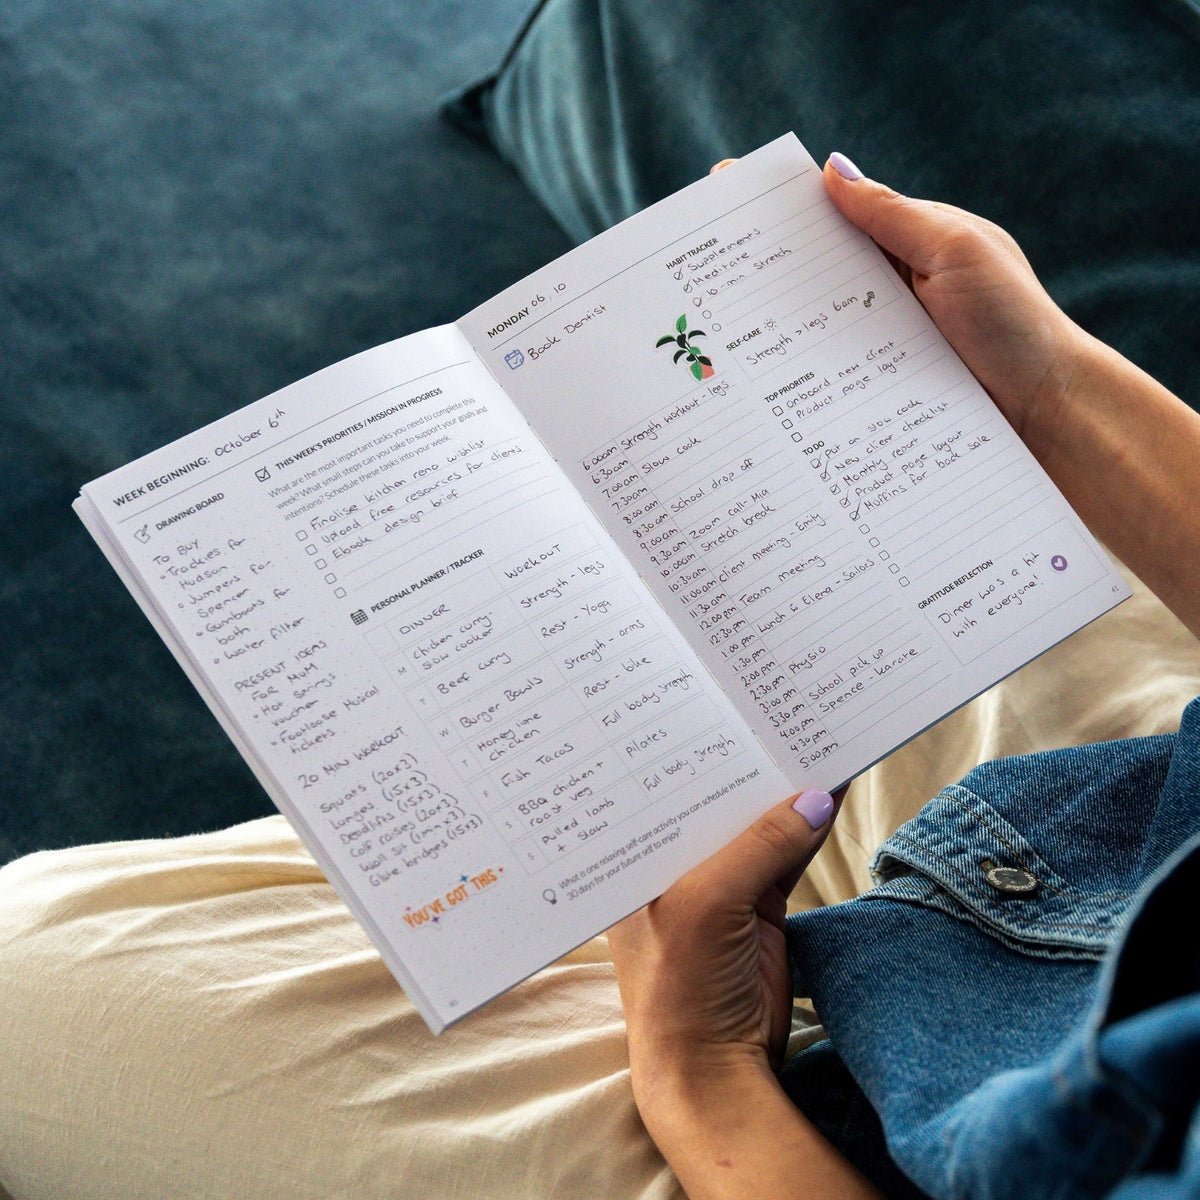 WEEK BEGINNING: October 6th
DRAWING BOARD
TO BUY
• Trackies for
Hudson
• Jumpers for
Spencer
• Gumboots for
both
• Water filter
PRESENT IDEAS
FOR MUM
• Hot springs
voucher
• Footloose Musical
tickets
20 MIN WORKOUT
Squats (20x3)
Lunges (15x3)
Deadlifts (15x3)
Calf raises (20x3)
Wall sit (1min x3)
Glute bridges (15x3)
YOU'VE GOT THIS
40
THIS WEEK'S PRIORITIES / MISSION IN PROGRESS
What are the most important tasks you need to complete this
week? What small steps can you take to support your goals and
intentions? Schedule these tasks into your week
Finalise kitchen reno wishlist
Upload free resources for clients
Ebook design brief
PERSONAL PLANNER / TRACKER
DINNER WORKOUT
M Chicken curry- Strength - legs
slow cooker
T Beef curry Rest - Yoga
W Burger Bowls Strength - arms
T Honey lime Rest - bike
chicken
F Fish Tacos Full body strength
S BBQ chicken + pilates
roast veg
S Pulled lamb Full body strength
+ slaw
What is one relaxing self-care activity you can schedule in the next
30 days for your future self to enjoy?
MONDAY 06/10
Book Dentist
6:00am Strength workout - legs
6:30am
7:00am Slow cook
7:30am
8:00am
8:30am School drop off
9:00am
9:30am Zoom call - Mia
10:00am Stretch break
10:30am
11:00am Client meeting - Emily
11:30am
12:00pm Team meeting
12:30pm
1:00pm Lunch & Elena - Sailors
1:30pm
2:00pm
2:30pm Physio
3:00pm
3:30pm School pick up
4:00pm Spence - karate
4:30pm
5:00pm
HABIT TRACKER
Supplements
Meditate
10-min stretch
SELF-CARE
Strength > legs 6am
TOP PRIORITIES
Onboard new client
Product page layout
TO DO
Put on slow cook
New client checklist
Monthly report
Product page layout
Muffins for bake sale
GRATITUDE REFLECTION
Dinner was a hit
with everyone!
41